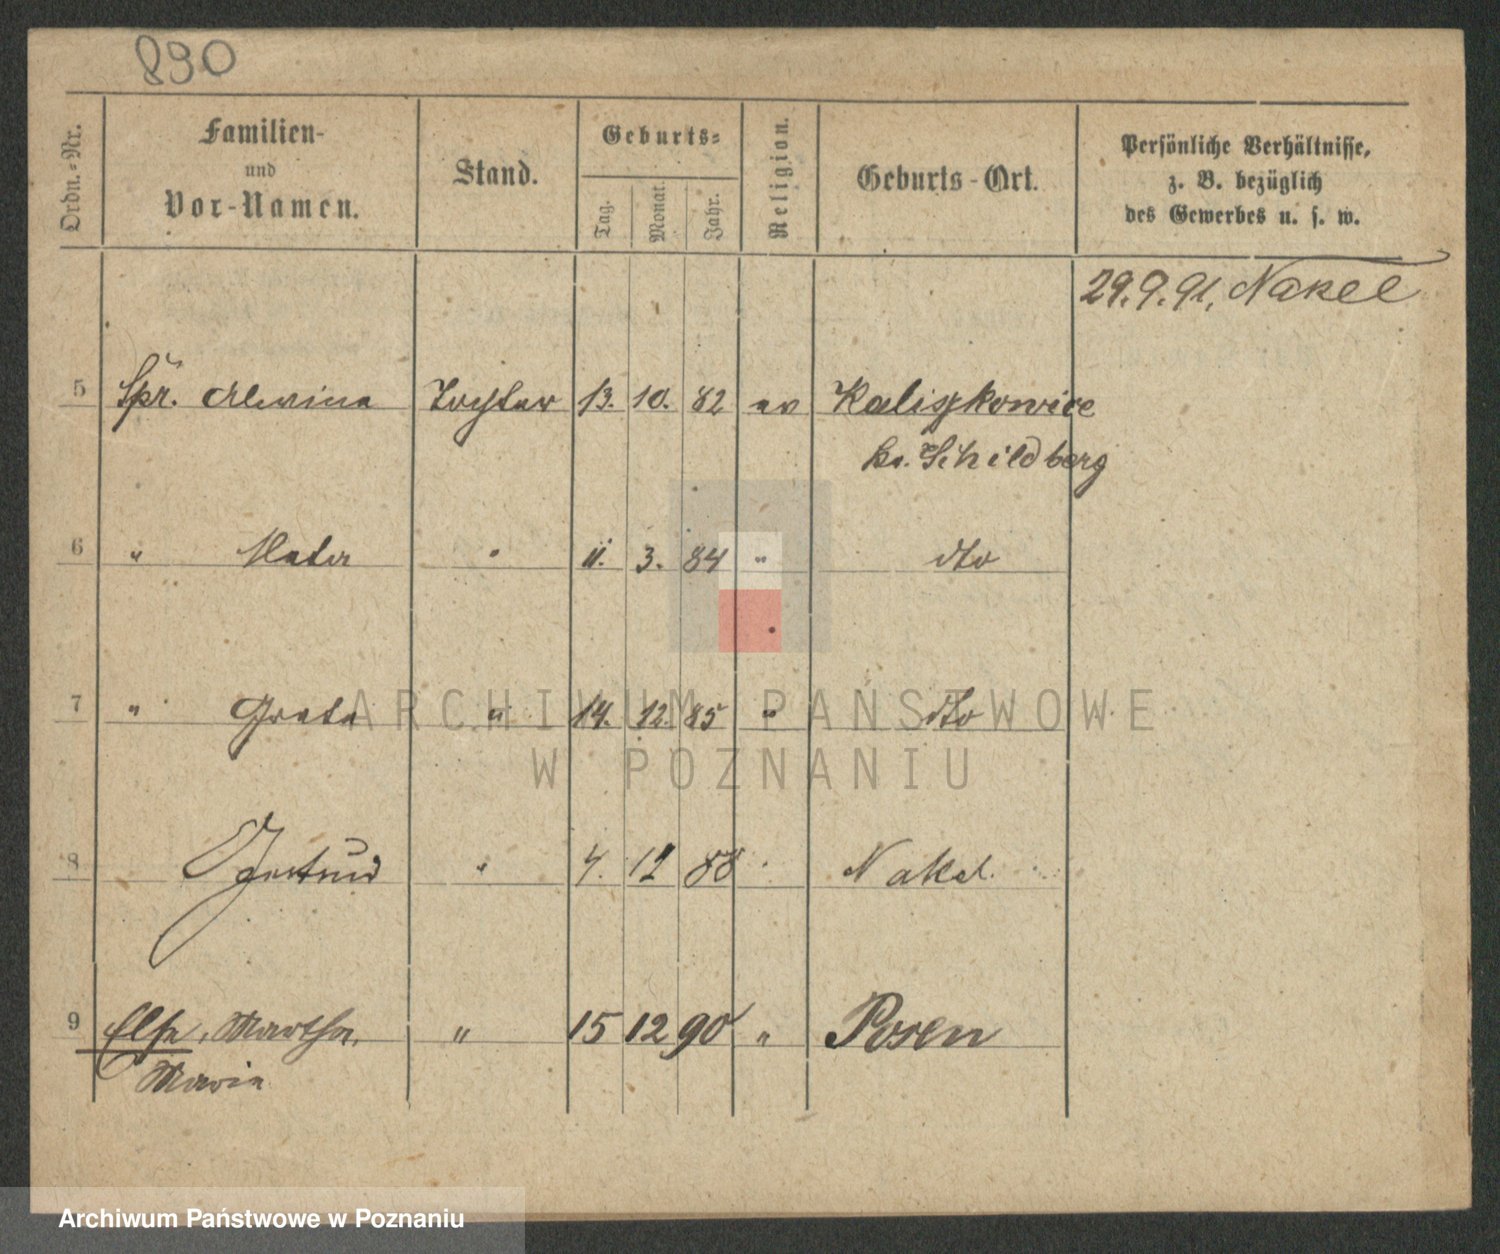 890
Ordn.-Nr. Familien- und Vor-Namen. Stand. Geburts- Tag. Monat. Jahr. Religion. Geburts-Ort. Persönliche Verhältnisse, z. B. bezüglich des Gewerbes u. s. w.
29.9.91. Nakel
5 Spr. Alwine Tochter 13. 10. 82 ev Kaliszkowice
Kr. Schildberg
6 " Meta " 11. 3. 84 " dto
7 " Greta " 14. 12. 85 " dto
8 Gertrud " 4. 12 88 Nakel
9 Else, Martha, " 15 12 90 " Posen
Maria
ARCHIWUM PAŃSTWOWE
W POZNANIU
Archiwum Państwowe w Poznaniu